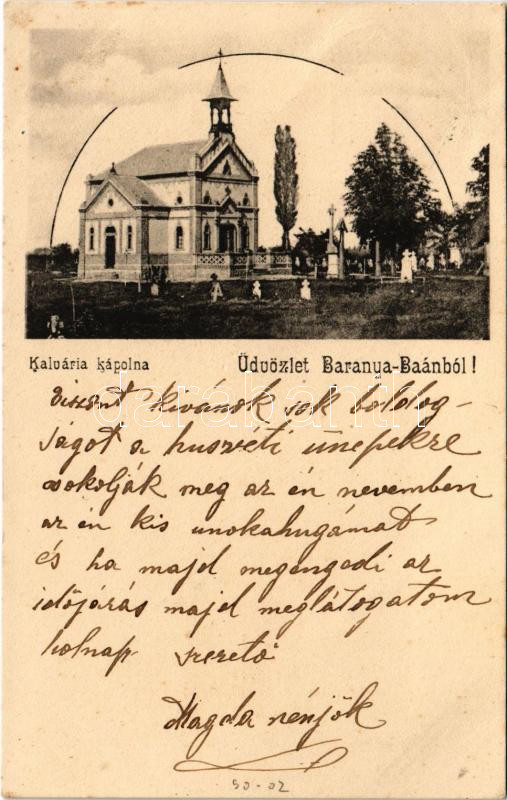 Kalvária kápolna
Üdvözlet Baranya-Baánból!
viszont kivánok sok boldog-
ságot a huszvéti ünepekre
csokolják meg az én nevemben
az én kis unokahugámat
és ha majd megengedi az
időjárás majd meglátogatom
holnap szerető
Magda nénjök
50-02
darabanth